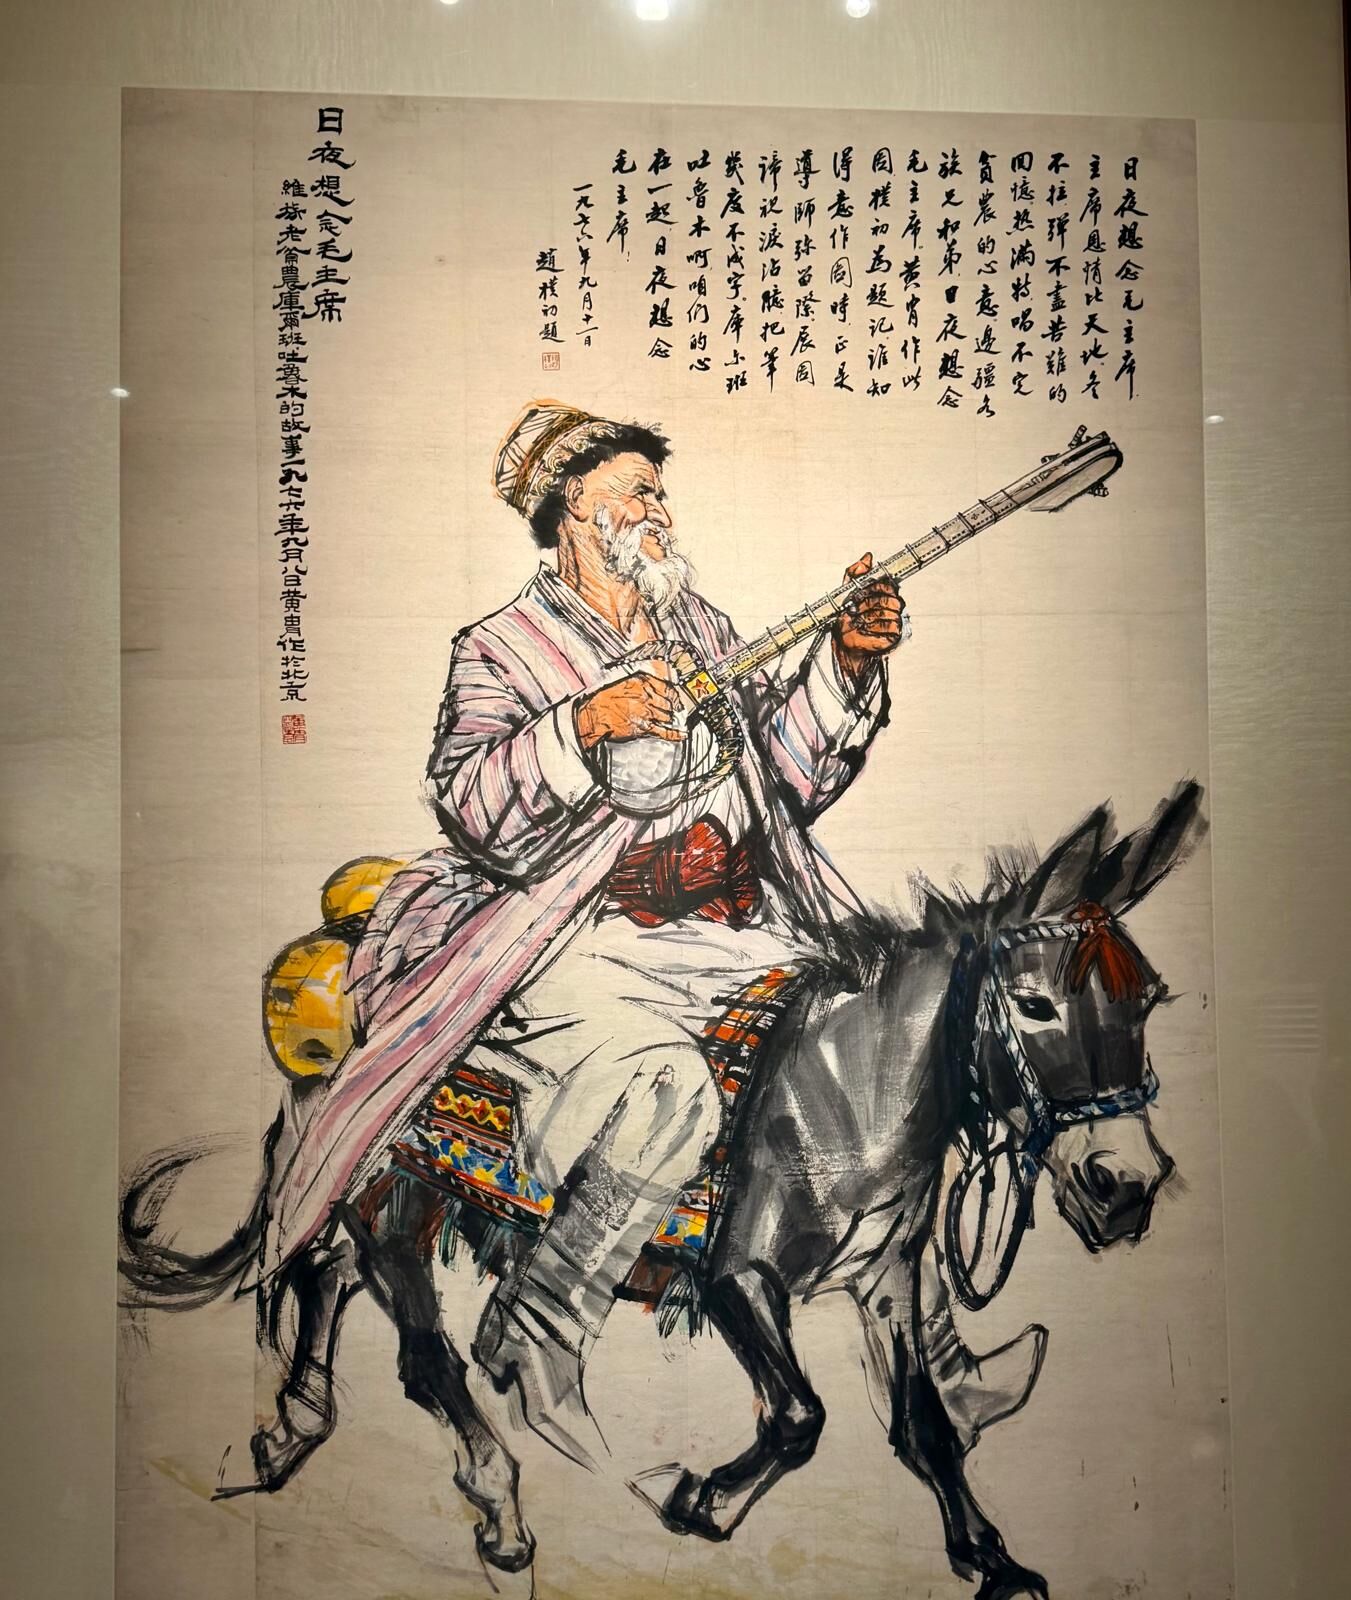 日夜想念毛主席
主席恩情比天地冬
不拉彈不盡苦難的
回憶热满特唱不完
貧農的心意邊疆各
族兄和弟日夜想念
毛主席黄胄作此
圖樸初為題記誰知
得意作圖時正是
導師弥留際展圖
諦視淚沾臆把筆
幾度不成字庫尔班
吐魯木啊咱们的心
在一起日夜想念
毛主席！
一九七六年九月十一日
趙樸初題
日夜想念毛主席
維族老貧農庫爾班吐魯木的故事一九七六年九月八日黄胄作於北京